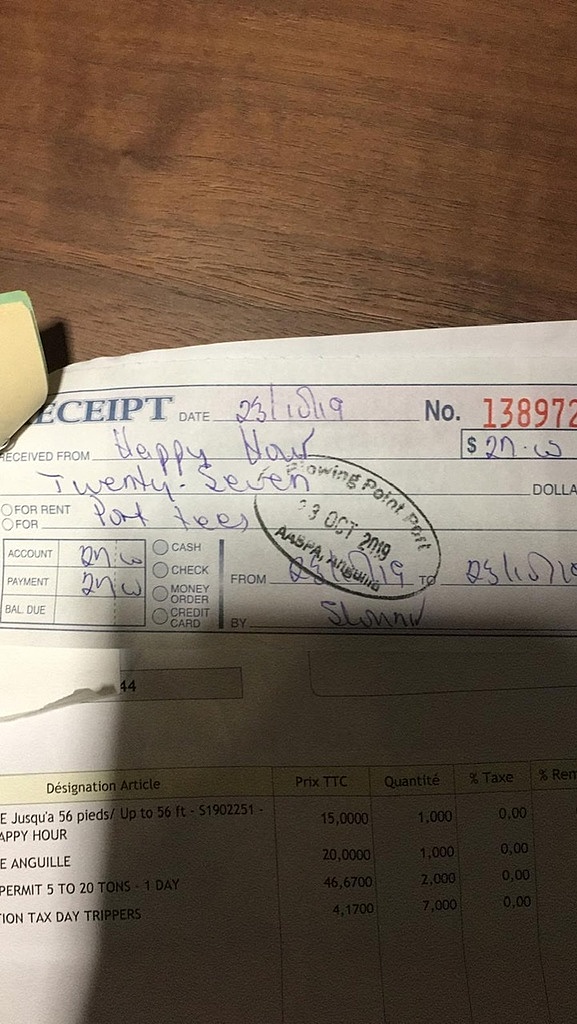 ECEIPT DATE 23/10/19 No. 138972
RECEIVED FROM Happy Hour $ 27.00
Twenty-Seven DOLLA
FOR RENT
FOR Port fees
Blowing Point Port
23 OCT 2019
AASPA, Anguilla
ACCOUNT 27 00
PAYMENT 27 00
BAL. DUE
CASH
CHECK
MONEY ORDER
CREDIT CARD
FROM 23/10/19 TO 23/10/19
BY
44
Désignation Article Prix TTC Quantité % Taxe % Rem
E Jusqu'a 56 pieds/ Up to 56 ft - S1902251 - 15,0000 1,000 0,00
APPY HOUR
E ANGUILLE 20,0000 1,000 0,00
PERMIT 5 TO 20 TONS - 1 DAY 46,6700 2,000 0,00
ION TAX DAY TRIPPERS 4,1700 7,000 0,00